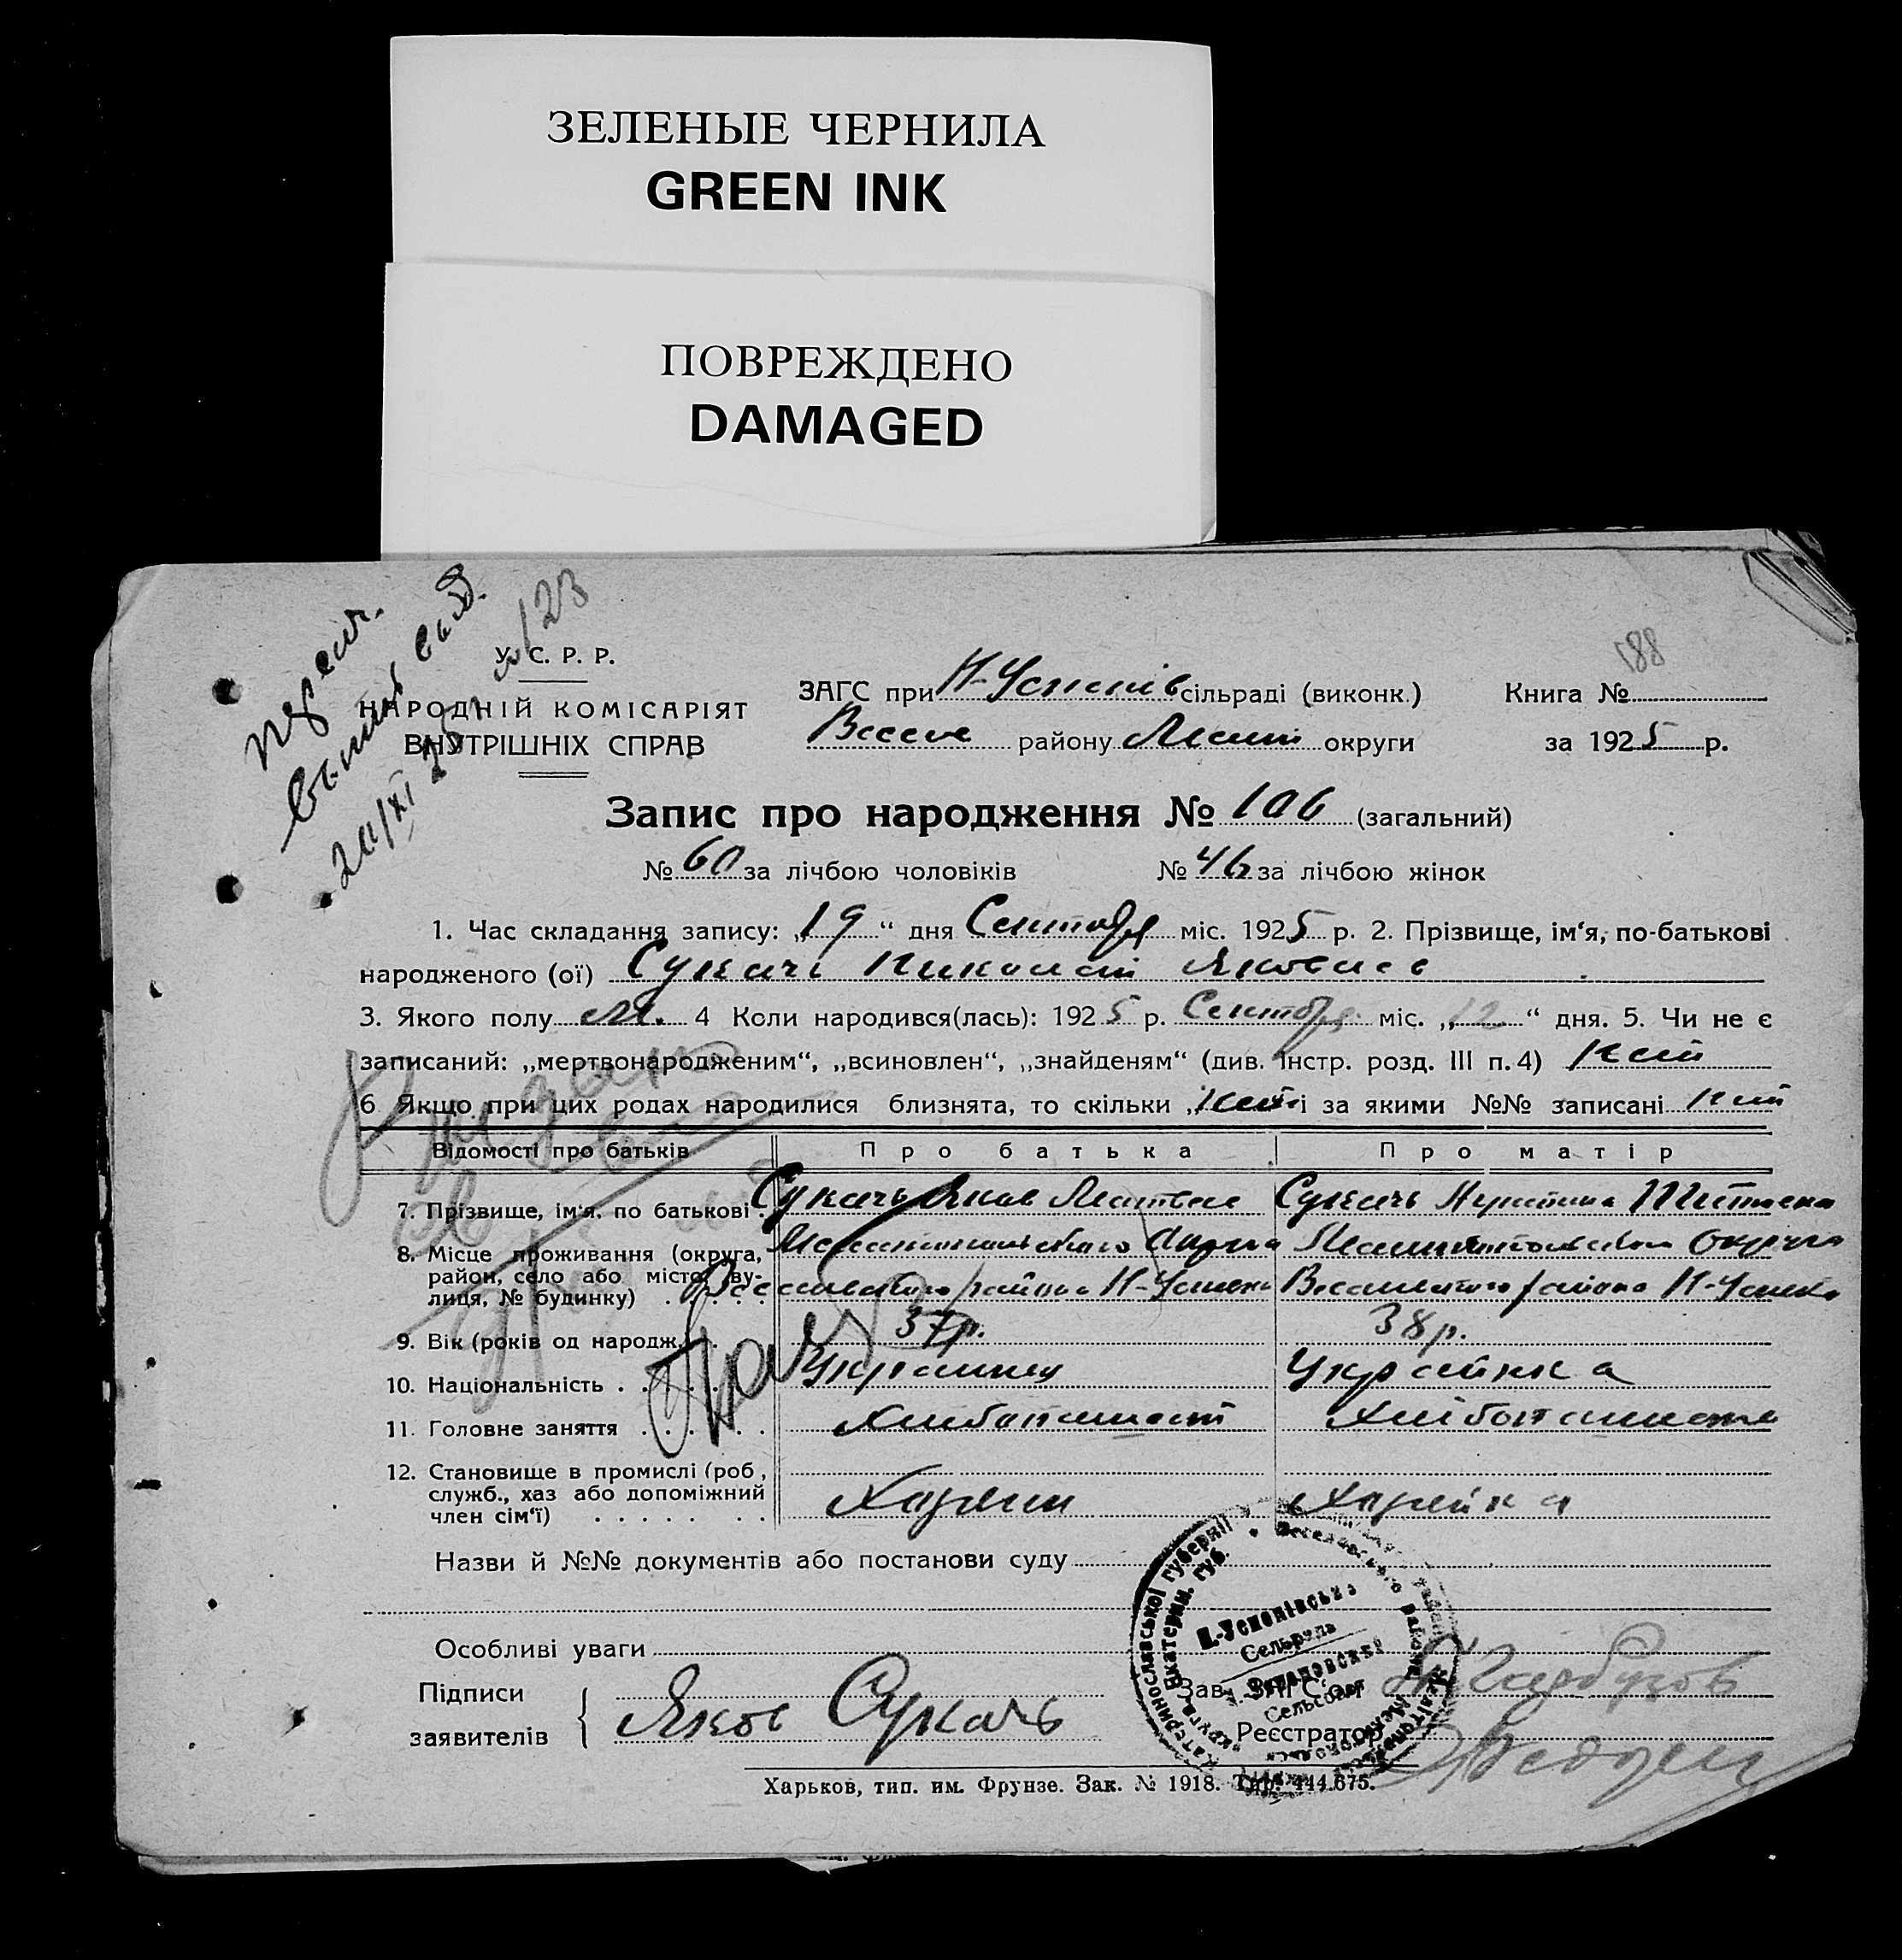 ЗЕЛЕНЫЕ ЧЕРНИЛА
GREEN INK
ПОВРЕЖДЕНО
DAMAGED
188
У. С. Р. Р.
НАРОДНІЙ КОМІСАРІЯТ
ВНУТРІШНІХ СПРАВ
ЗАГС при Н-Успенів сільраді (виконк.) Книга №
Весел району Меліт округи за 1925 р.
Запис про народження № 106 (загальний)
№ 60 за лічбою чоловіків № 46 за лічбою жінок
1. Час складання запису: „19“ дня Сентябр міс. 1925 р. 2. Прізвище, ім‘я, по-батькові
народженого (ої) Сукачь Николай Яковлев
3. Якого полу М. 4 Коли народився(лась): 1925 р. Сентябр міс. „12“ дня. 5. Чи не є
записаний: „мертвонародженим“, „всиновлен“, „знайденям“ (див. інстр. розд. III п. 4) Ниі
6 Якщо при цих родах народилися близнята, то скільки „ниі“ і за якими №№ записані ниі
Відомості про батьків Про батька Про матір
7. Прізвище, ім‘я, по батькові Сукачь Яков Матвее Сукачь
8. Місце проживання (округа, Мелитопольского Округа Мелитопольского Округа
район, село або місто, ву-
лиця, № будинку) Веселовского района Н-Успенка Веселовского района Н-Успенка
9. Вік (років од народж.) 37 р. 38 р.
10. Національність Українец Українка
11. Головне заняття
12. Становище в промислі (роб,
служб., хаз або допоміжний
член сім‘ї) Хазяин Хазяйка
Назви й №№ документів або постанови суду
Особливі уваги
Підписи
заявителів Яков Сукачь
Зав. ЗАГС‘ом
Реєстратор
Н.-Успенівська
Сельрада
Успеновский
Сельсовет
Харьков, тип. им. Фрунзе. Зак. № 1918. Тир. 444.675.